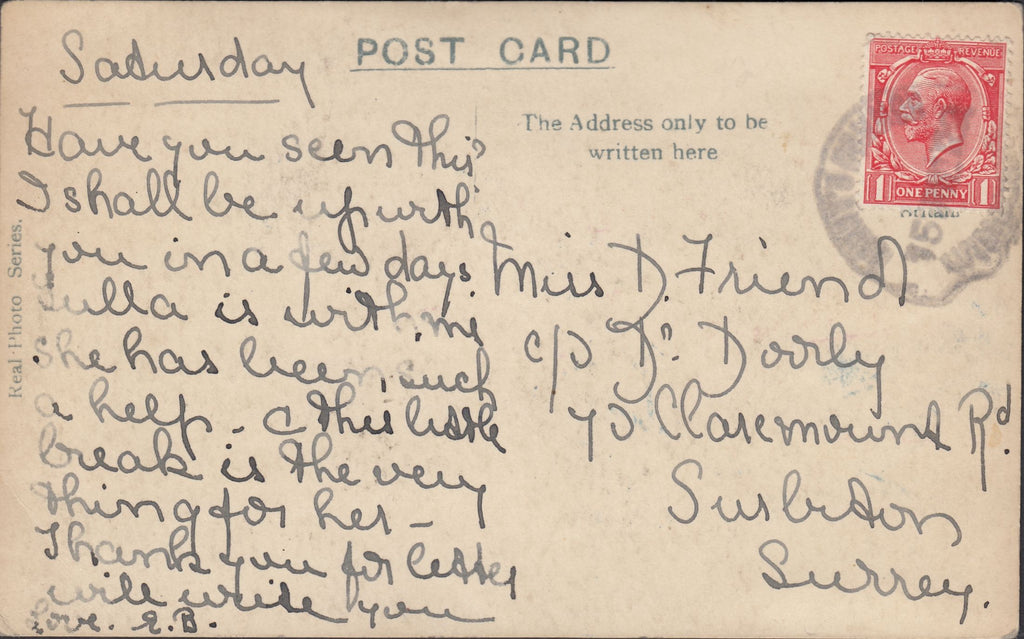 Saturday
POST CARD
The Address only to be
written here
POSTAGE REVENUE
1 ONE PENNY 1
15
Real Photo Series.
Have you seen this?
I shall be up with
you in a few days
is with me
She has been such
a help - & this little
break is the very
thing for her -
Thank you for letter
will write you
Love. E.B.
Miss D. Friend
c/o Dr. Doorly
70 Claremount Rd.
Surbiton
Surrey.